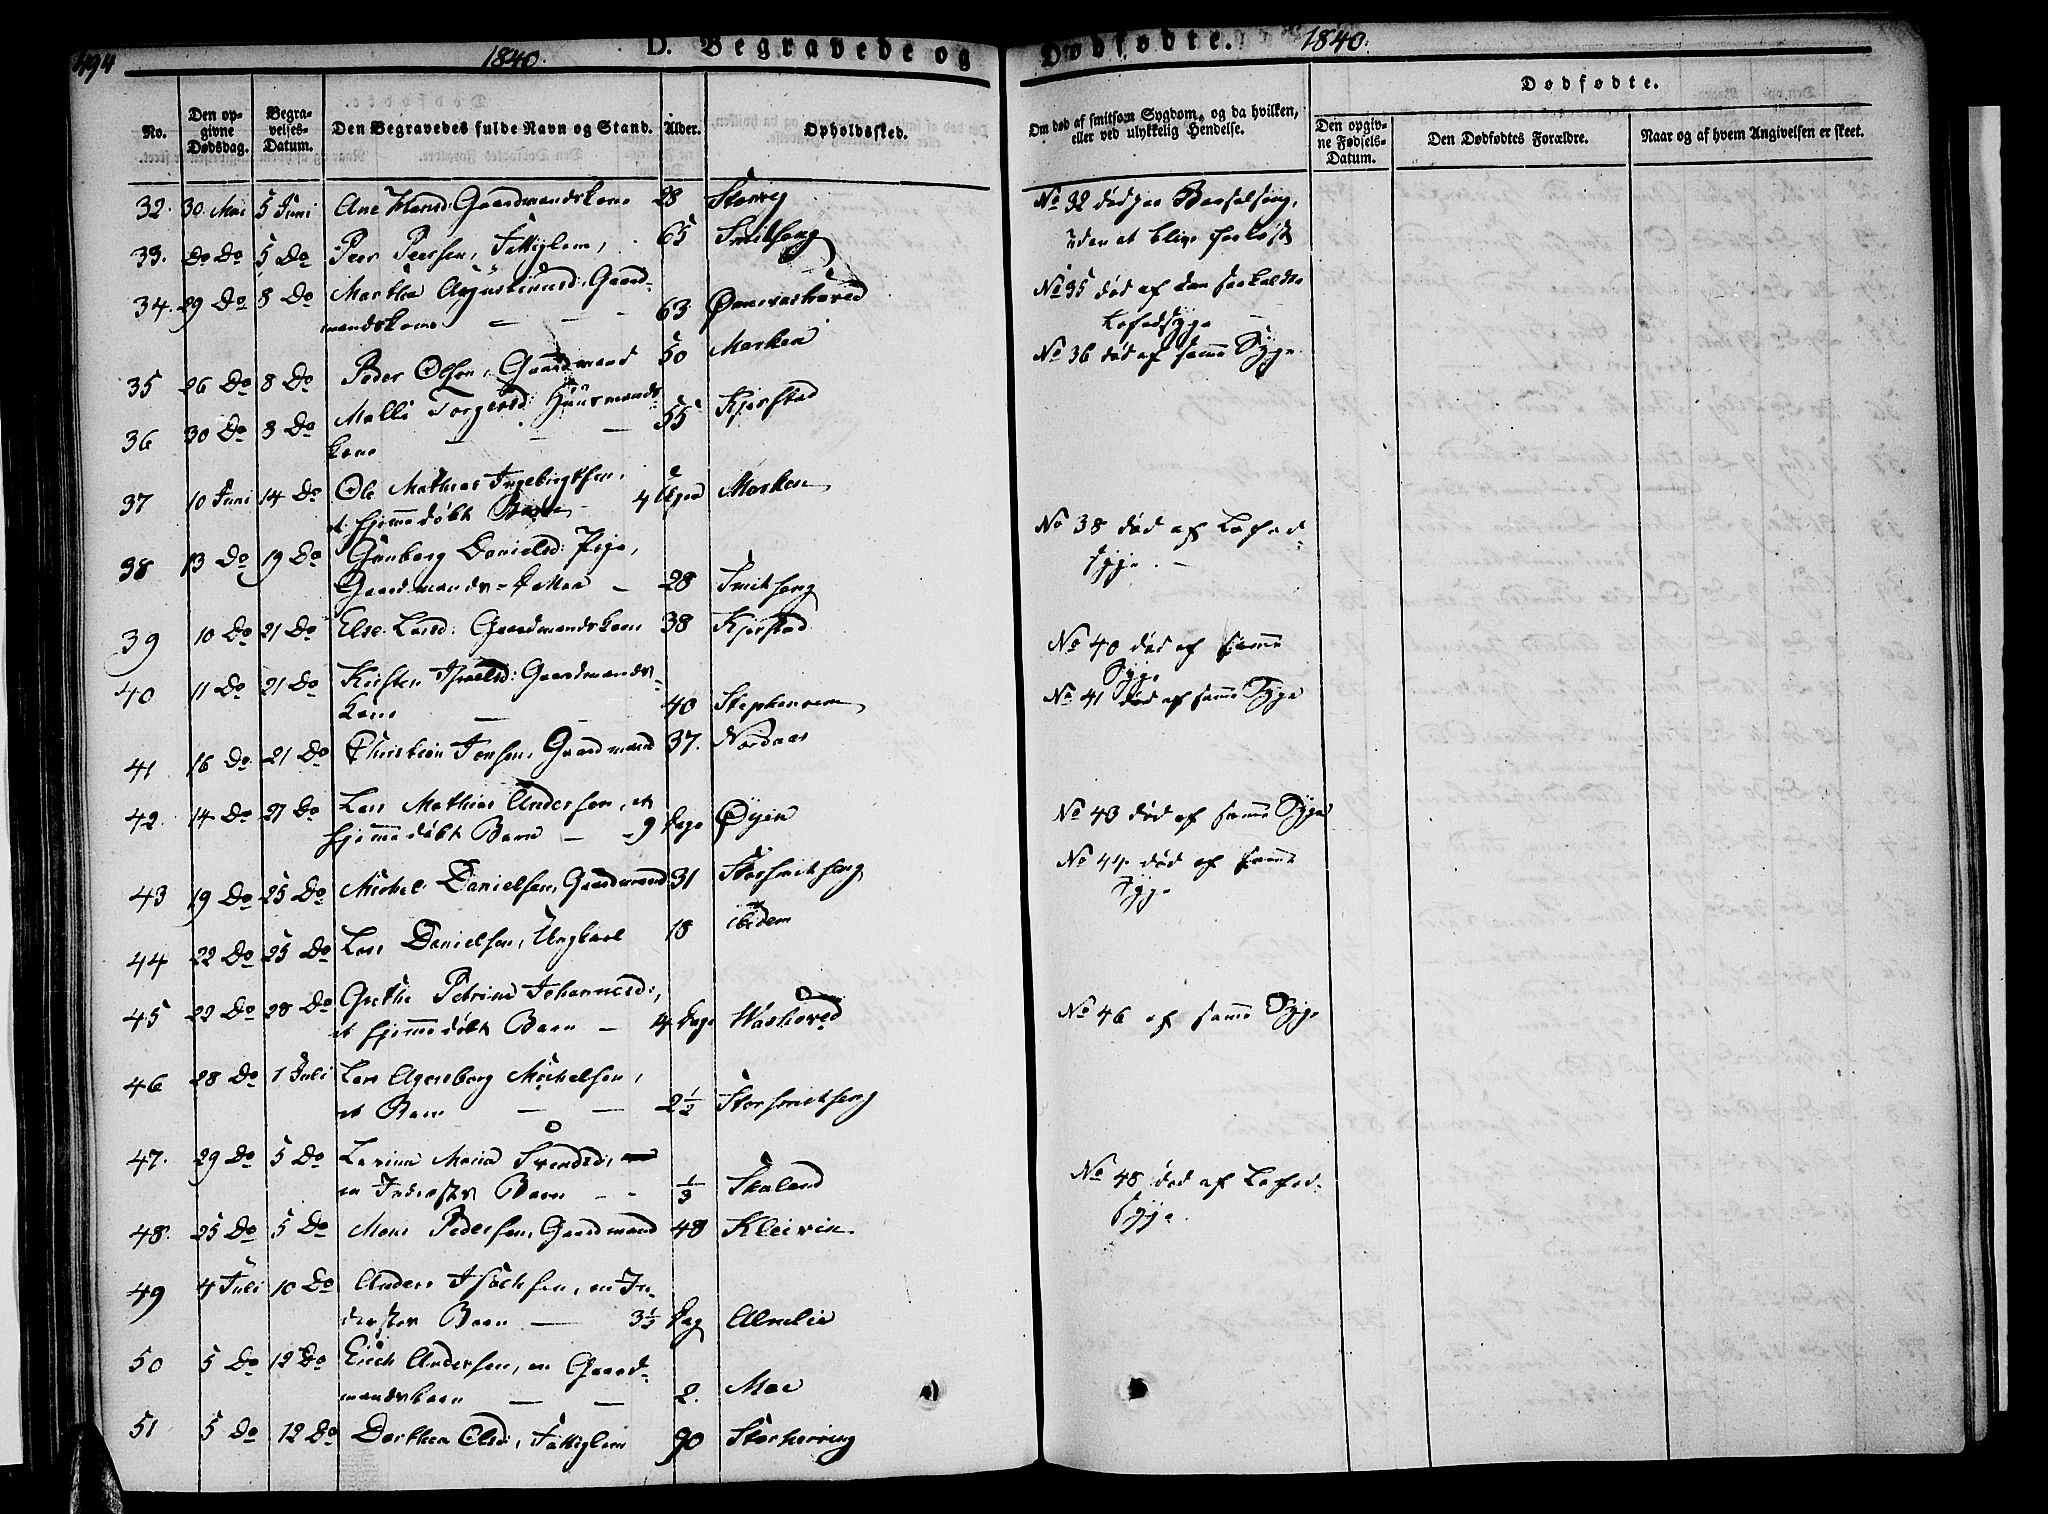 494
1840.
D. Begravede og
Dødfødte.
1840.
No.
Den op-
givne
Dødsdag.
Begra-
velses-
Datum.
Den Begravedes fulde Navn og Stand.
Alder.
Opholdssted.
Om død af smitsom Sygdom, og da hvilken,
eller ved ulykkelig Hendelse.
Dødfødte.
Den opgiv-
ne Fødsels-
Datum.
Den Dødfødtes Forældre.
Naar og af hvem Angivelsen er skeet.
32. 30 Mai 5 Juni Ane Hansd: Gaardmandskone 28
33. Do Do 5 Do Peer Peersen, Fattiglem, 65 Smitsong
34. 29 Do 8 Do Martha Augustinusd: Gaard-
mandskone — — 63
35 26 Do 8 Do Peder Olsen, Gaardmand 50 Marken
36 30 Do 8 Do Malli Torgersd: Huusmands-
kone — — 55 Kjerstad
37 10 Juni 14 Do Ole Mathias Ingebrigtsen,
et hjemmedøbt Barn 4 Uger Marken
38 13 Do 19 Do Gunborg Danielsd: Pige,
Gaardmands-Datter — 28 Smitsong
39 10 Do 21 Do Else Larsd: Gaardmandskone 38 Kjerstad
40 11 Do 21 Do Kirsten Israelsd: Gaardmands-
kone — — 40
41 16 Do 21 Do Christian Jensen, Gaardmand 37. Nordaas
42. 14 Do 21 Do Lars Mathias Andersen, et
hjemmedøbt Barn — 9 Dage Øyen
43 19 Do 25 Do Michel Danielsen, Gaardmand 31 Storsmitsong
44 22 Do 25 Do Lars Danielsen, Ungkarl 18 ibidem
45 22 Do 28 Do Grethe Petrine Johannesd:,
et hjemmedøbt Barn — 4 Dage Washoved
46 28 Do 1 Juli Lars Agersborg Michelsen,
et Barn — — 2½ Storsmitsong
47. 29 Do 5 Do Maria Svendsd:
en Inderstes Barn — - ⅓ Skaland
48. 25 Do 5 Do Mons Pedersen, Gaardmand 48 Kleiven
49 4 Juli 10 Do Anders Isachsen, en In-
derstes Barn — 3½ Dag
50 5 Do 12 Do Erich Andersen, en Gaard-
mandsbarn — — 2. Moe
51 5 Do 12 Do Dorthea Olsd:, Fattiglem 90
No 32 død paa Barselseng,
uden at blive forløst
No 35 død af den saakaldte
Lofodsyge
No 36 død af samme Syge
No 38 død af Lofod-
syge. —
No 40 død af samme
Syge
No 41 død af samme Syge
No 43 død af samme Syge
No 44 død af samme
Syge
No 46 af samme Syge
No 48 død af Lofod-
syge.